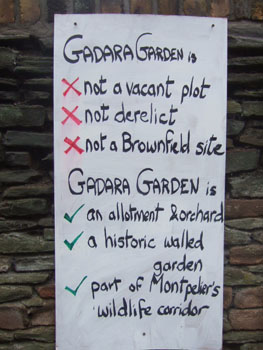 GADARA GARDEN is
✗ not a vacant plot
✗ not derelict
✗ not a Brownfield site
GADARA GARDEN is
✓ an allotment & orchard
✓ a historic walled
garden
✓ part of Montpelier's
wildlife corridor